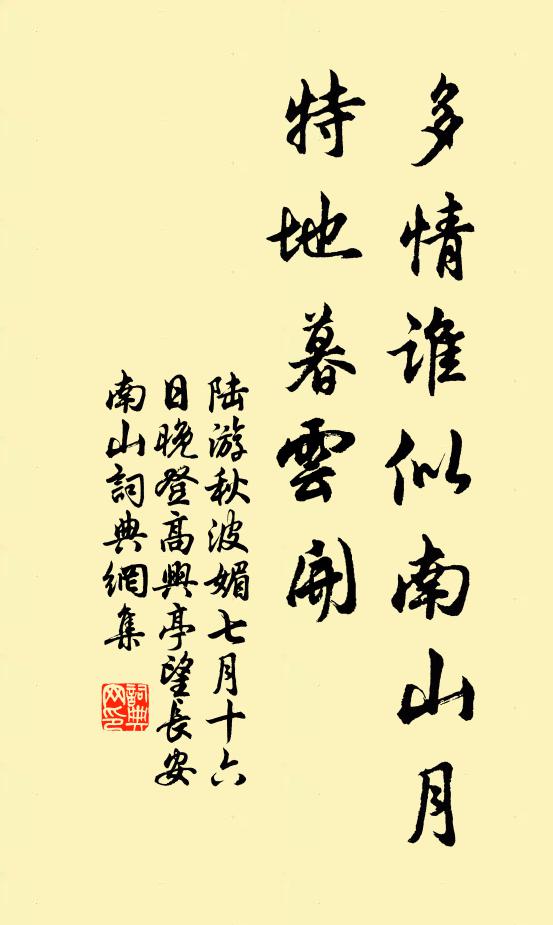 多情誰似南山月
特地暮雲開
陆游秋波媚七月十六
日晚登高興亭望長安
南山詞典網集
詞典
网印